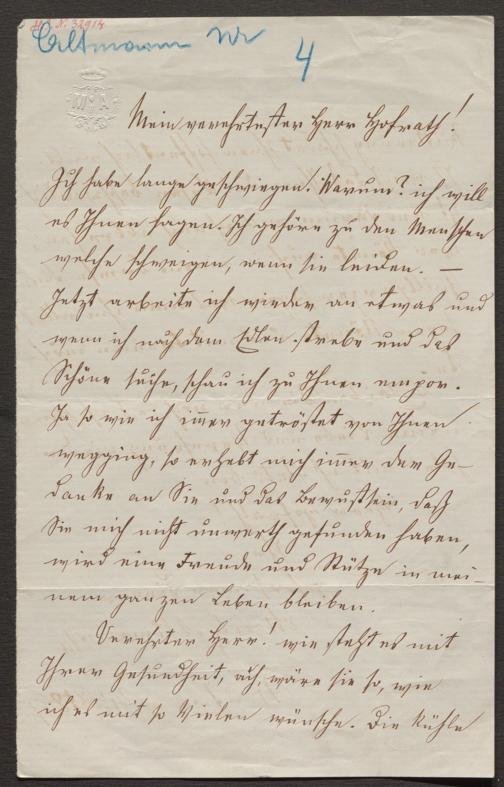 H. I. N. 32914
Altmann Nr
4
Mein verehrtester Herr Hofrath!
Ich habe lange geschwiegen. Warum? ich will
es Ihnen sagen. Ich gehöre zu den Menschen
welche schweigen, wenn sie leiden. —
Jetzt arbeite ich wieder an etwas und
wenn ich nach dem Edlen strebe und das
Schöne suche, schau ich zu Ihnen empor.
Ja so wie ich im̄er getröstet von Ihnen
wegging, so erhebt mich im̄er der Ge-
danke an Sie und das Bewußtsein, daß
Sie mich nicht unwerth gefunden haben,
wird eine Freude und Stütze in mei-
nem ganzen Leben bleiben.
Verehrter Herr! wie steht es mit
Ihrer Gesundheit, ach, wäre sie so, wie
ich es mit so Vielen wünsche. Die kühle